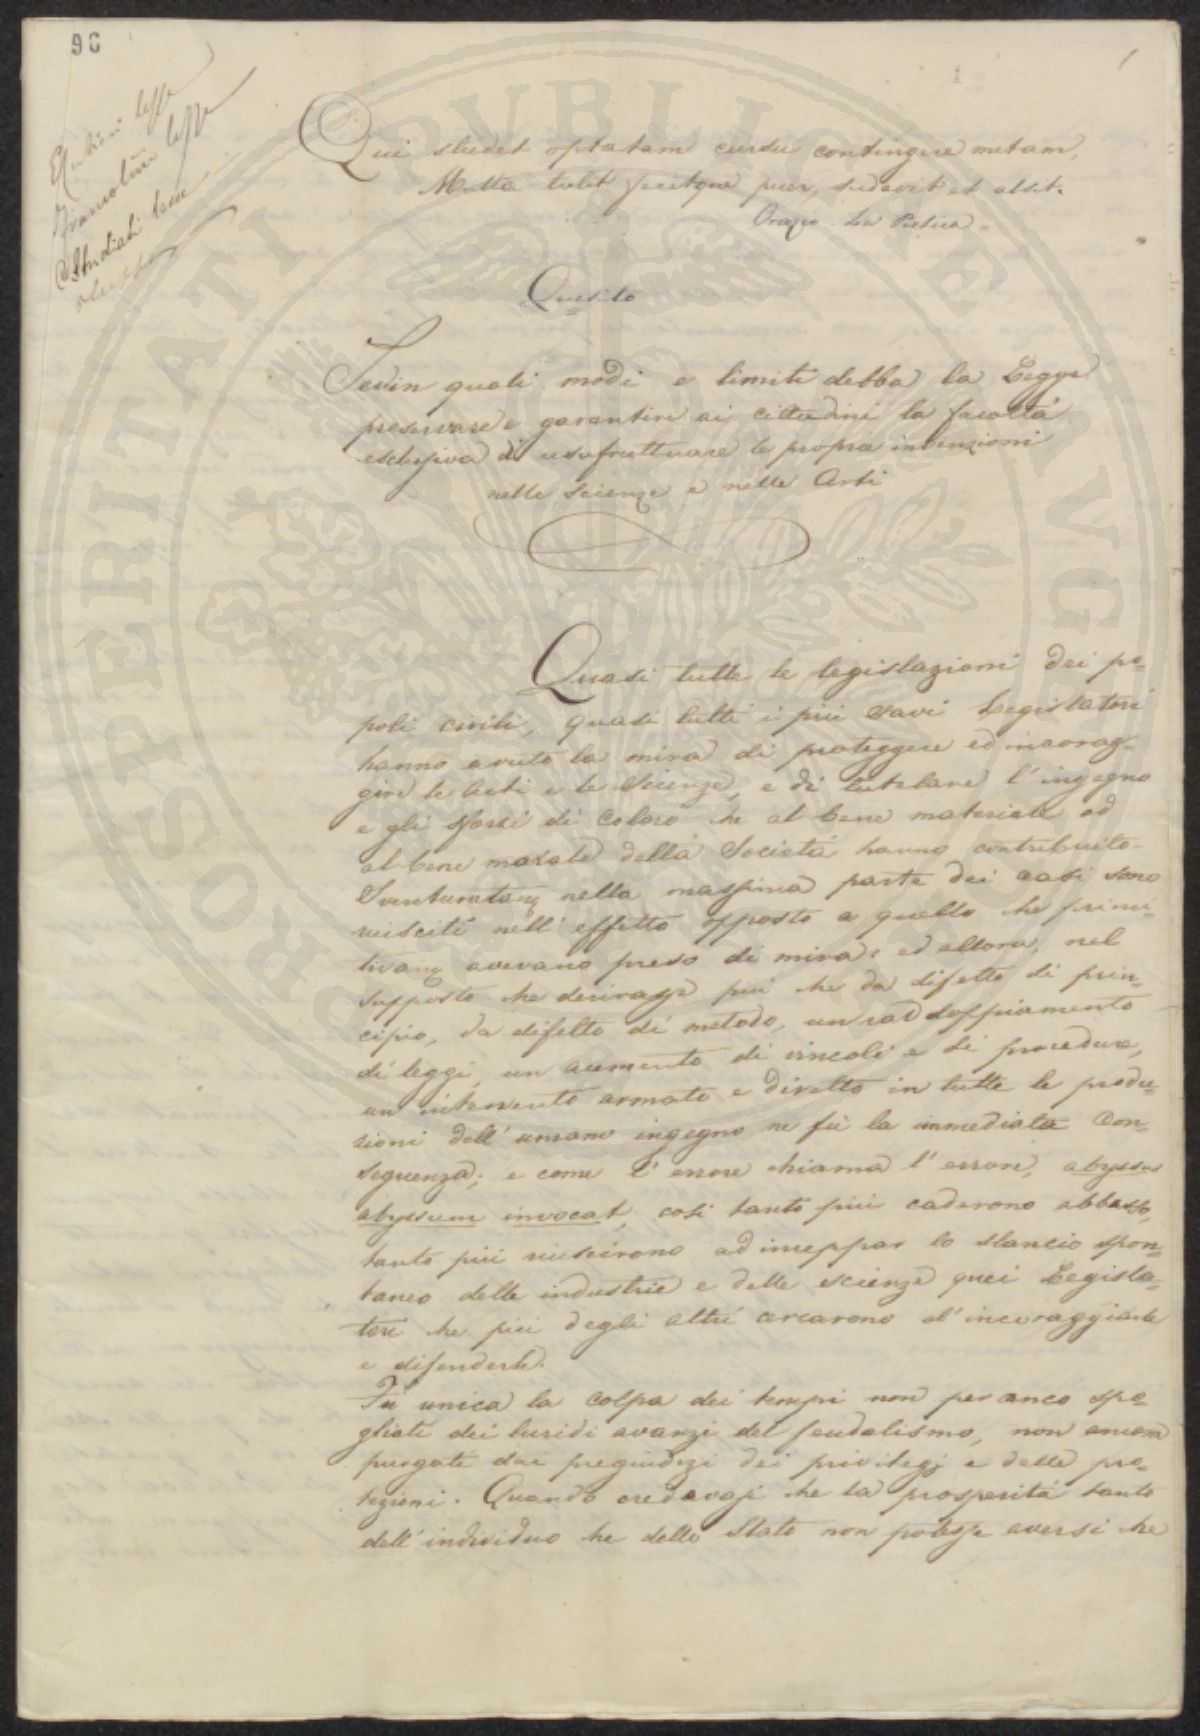 96
1
lesse
lesse
Studiati
Qui studet optatam cursu contingere metam,
Multa tulit fecitque puer, sudavit et alsit.
Orazio. La Poetica =
Quesito
Se ed in quali modi e limiti debba la Legge
preservare e garantire ai cittadini la facoltà
esclusiva di usufruttuare le proprie invenzioni
nelle Scienze e nelle Arti
Quasi tutte le legislazioni dei po-
poli civili, quasi tutti i più savi Legislatori
hanno avuto la mira di proteggere ed incorag-
gire le Arti e le Scienze, e di tutelare l'ingegno
e gli sforzi di coloro che al bene materiale ed
al bene morale della Società hanno contribuito.
Sventuratamᵉ nella massima parte dei casi sono
riusciti nell'effetto opposto a quello che primi-
tivamᵉ avevano preso di mira: ed allora, nel
supposto che derivasse più che da difetto di prin-
cipio, da difetto di metodo, un raddoppiamento
di leggi, un aumento di vincoli e di procedure,
un intervento armato e diretto in tutte le produ-
zioni dell'umano ingegno ne fù la immediata con-
seguenza; e come l'errore chiama l'errore, abyssus
abyssum invocat, così tanto più caderono abbasso,
tanto più riuscirono ad inceppar lo slancio spon-
taneo delle industrie e delle scienze quei Legisla-
tori che più degli altri cercarono d'incoraggiarle
e difenderle.
Fù unica la colpa dei tempi non per anco spo-
gliati dei luridi avanzi del feudalismo, non ancora
purgati dai pregiudizi dei privilegj e delle pro-
tezioni. Quando credevasi che la prosperità tanto
dell'individuo che dello Stato non potesse aversi che
PUBLICAE
PROSPERITATI
AUG